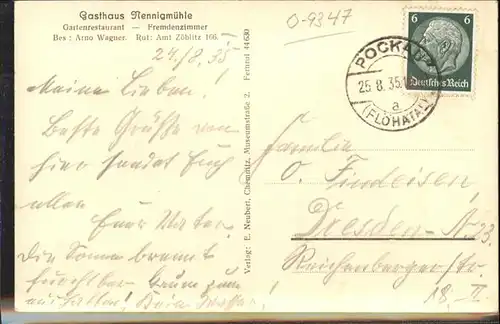 Gasthaus Nennigmühle
Gartenrestaurant — Fremdenzimmer
Bes: Arno Wagner. Ruf: Amt Zöblitz 166.
24./8. 35
Meine Lieben!
Beste Grüße von
hier sendet Euch
allen
Euer Vater.
Die Sonne brennt
furchtbar kaum zum
aushalten! Kein Wasser.
Verlag: E. Neubert, Chemnitz, Museumstraße 2. Fernruf 44630
O-9347
6 6
Deutsches Reich
POCKAU
25.8.35.
a
(FLÖHATAL)
Familie
O. Findeisen,
Dresden-A. 23.
Reichenberger Str.
18. II